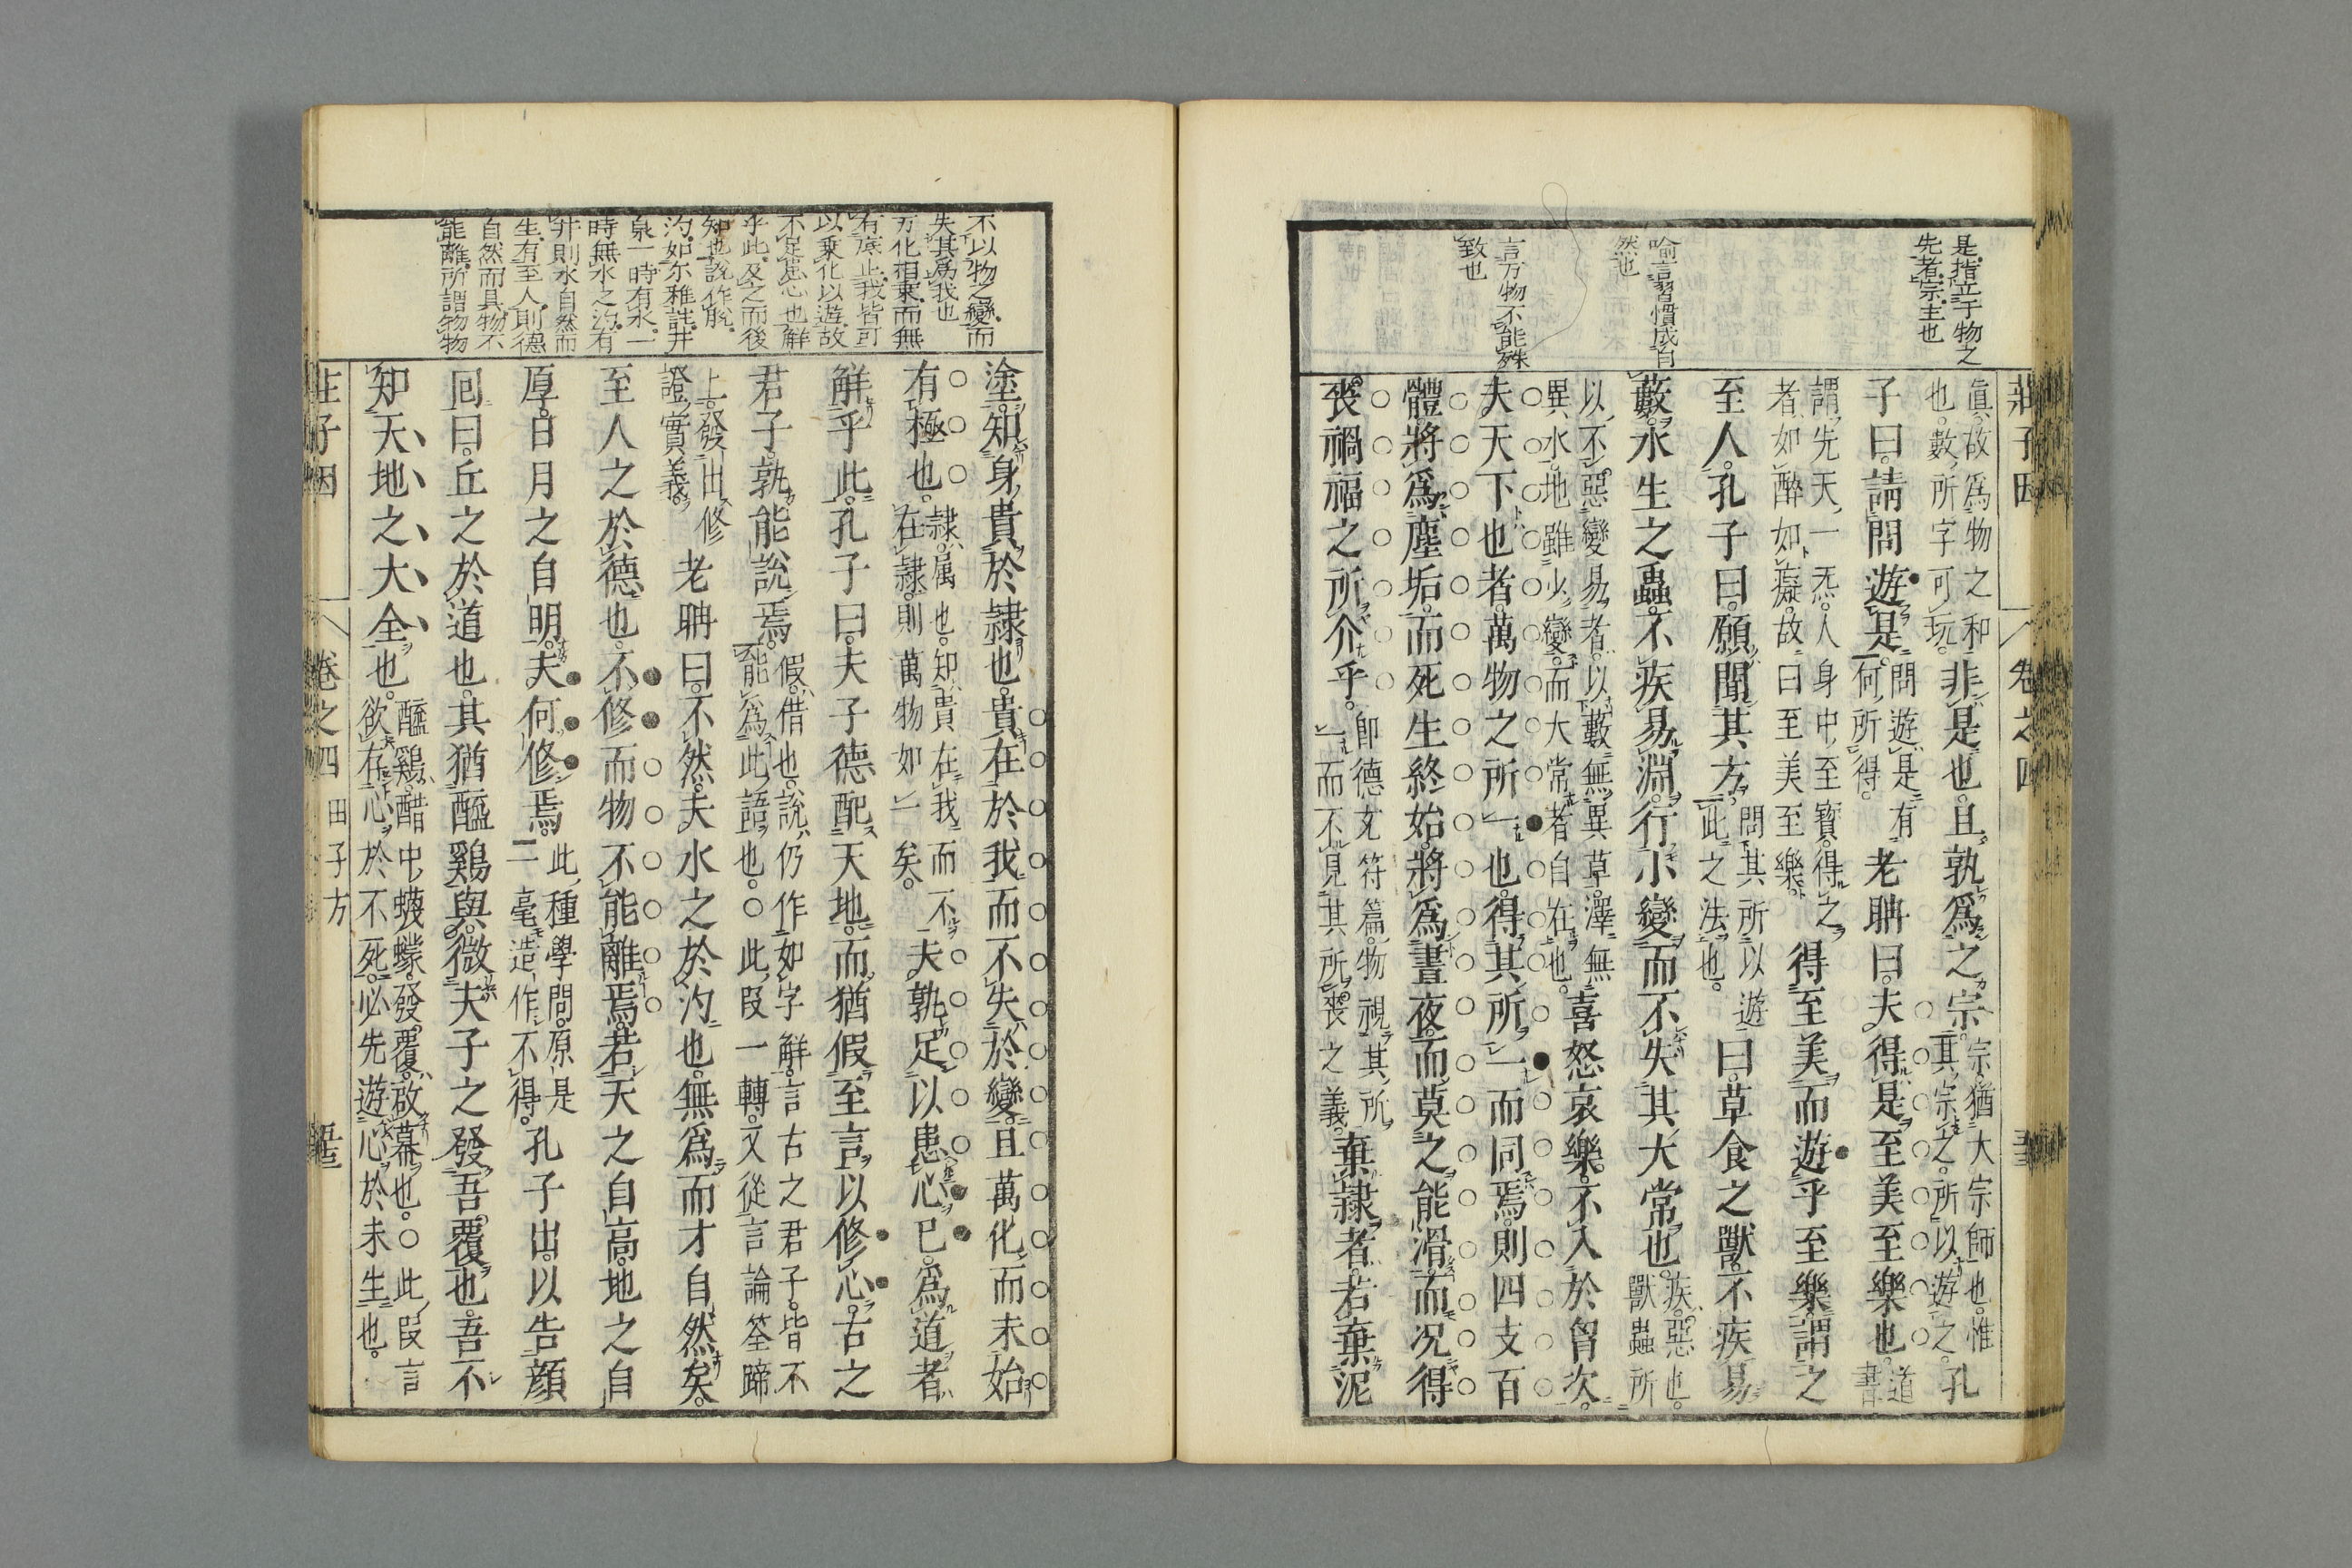 莊子因 卷之四
是指立于物之
先者宗主也
喻言習慣成自
然也
言万物不能殊
致也
眞故爲物之和
也數所字可玩
非是也且孰爲之宗
宗猶大宗師也惟
其宗之所以遊之
孔
子曰請問遊是
問遊是有
何所得
老聃曰夫得是至美至樂也
道
書
謂先天一炁人身中至寶得之
者如醉如癡故曰至美至樂
得至美而遊乎至樂謂之
至人孔子曰願聞其方
問其所以遊
此之法也
曰草食之獸不疾易
藪水生之蟲不疾易淵行小變而不失其大常也
疾惡也
獸蟲所
以不惡變易者以藪無異草澤無
異水地雖少變而大常者自在也
喜怒哀樂不入於胷次
夫天下也者萬物之所一也得其所一而同焉則四支百
體將爲塵垢而死生終始將爲晝夜而莫之能滑而况得
喪禍福之所介乎
即德充符篇物視其所
一而不見其所喪之義
棄隸者若棄泥
不以物之變而
失其爲我也
万化相乗而無
有底止我皆可
以乗化以遊故
不足患心也解
乎此及之而後
知也說作脫
汋如尓雅註井
泉一時有水一
時無水之汋有
井則水自然而
生有至人則德
自然而具物不
能離所謂物物
塗知身貴於隸也貴在於我而不失於變且萬化而未始
有極也
隸属也知貴在我而不
在隸則萬物如一矣
夫孰足以患心已爲道者
解乎此孔子曰夫子德配天地而猶假至言以修心古之
君子孰能說焉
假借也說仍作如字解言古之君子皆不
能爲此語也○此段一轉又從言論筌蹄
上發出修
證實義
老聃曰不然夫水之於汋也無爲而才自然矣
至人之於德也不修而物不能離焉若天之自高地之自
厚日月之自明夫何修焉
此種學問原是
一毫造作不得
孔子出以告顔
回曰丘之於道也其猶醯鷄與微夫子之發吾覆也吾不
知天地之大全也
醯鷄醋中蠛蠓發覆啟幕也○此段言
欲存心於不死必先遊心於未生也
莊子因 卷之四 田子方